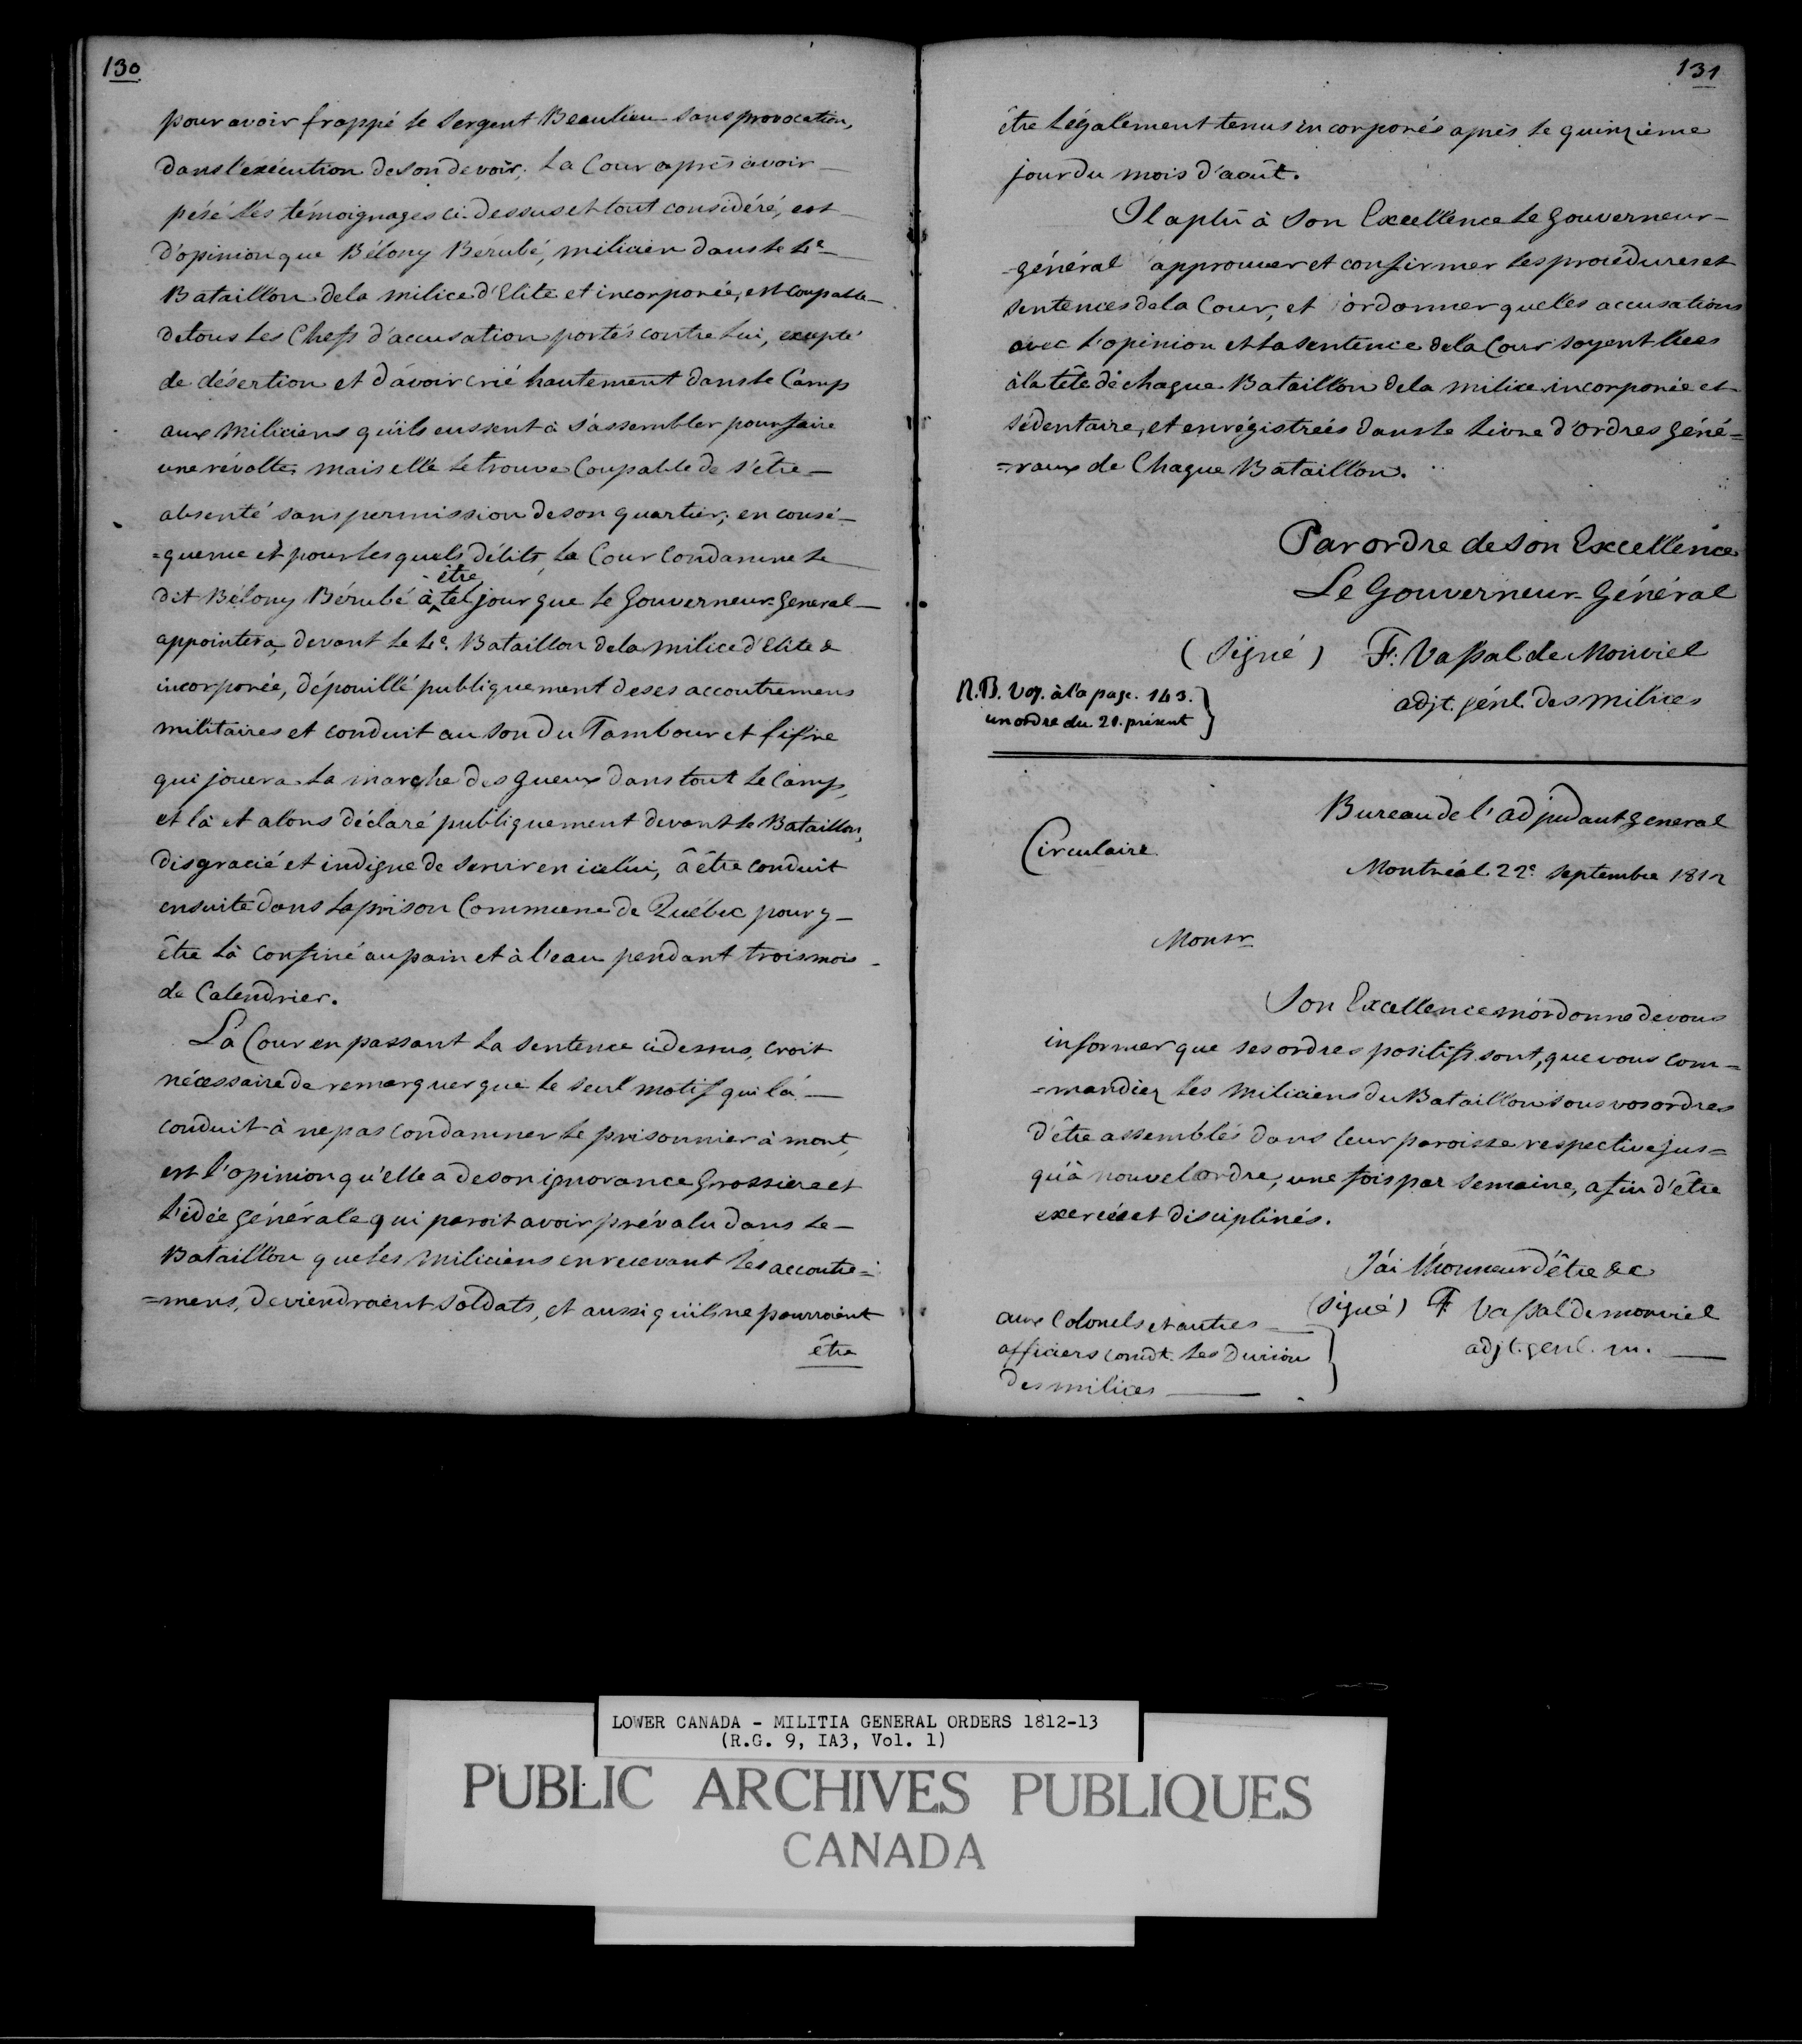 130
pour avoir frappé le Sergent Beaulieu sans provocation,
dans l'exécution de son devoir; La Cour après avoir
pésé les témoignages ci-dessus et tout considéré, est
d'opinion que Bélony Bérubé, milicien dans le 4e
Bataillon de la milice d'Elite et incorporée, est Coupable
de tous les Chefs d'accusation portés contre lui, excepté
de désertion et d'avoir crié hautement dans le Camp
aux Miliciens qu'ils eussent à s'assembler pour faire
une révolte; mais elle le trouve Coupable de s'être
absenté sans permission de son quartier; en consé-
=quence et pour les quels délits, la Cour Condamne le
dit Bélony Bérubé à être tel jour que le Gouverneur-General
appointera, devant le 4e. Bataillon de la milice d'Elite &
incorporée, dépouillé publiquement de ses accoutremens
militaires et conduit au son du Tambour et fifre
qui jouera la marche des Gueux dans tout le Camp,
et là et alors déclaré publiquement devant le Bataillon,
disgracié et indigne de servir en icelui, à être conduit
ensuite dans la prison Commune de Québec pour y
être là confiné au pain et à l'eau pendant trois mois
de Calendrier.
La Cour en passant la sentence ci dessus, croit
nécessaire de remarquer que le seul motif qui l'a
conduit à ne pas condamner le prisonnier à mort,
est l'opinion qu'elle a de son ignorance Grossiere et
l'idée générale qui paroit avoir prévalu dans le
Bataillon que les Miliciens en recevant les accoutre=
=mens, deviendroient Soldats, et aussi qu'ils ne pourroient
être
131
être légalement tenus incorporés après le quinzième
jour du mois d'août.
Il a plû à Son Excellence le Gouverneur-
-général approuver et confirmer les procédures et
sentences de la Cour, et ordonner que les accusations
avec l'opinion et la sentence de la Cour soyent lues
à la tête de chaque Bataillon de la milice incorporée et
sédentaire, et enrégistrées dans le Livre d'Ordres Géné=
=raux de Chaque Bataillon.
Par ordre de Son Excellence
Le Gouverneur-Général
(Signé) F: Vassal de Monviel
adjt. génl. des milices
N.B. Voy. à la page. 143.
un ordre du 20. présent
Bureau de l'adjudant General
Circulaire
Montréal 22e. Septembre 1812
Monsr
Son Excellence m'ordonne de vous
informer que ses ordres positifs sont, que vous com=
=mandiez les Miliciens du Bataillon sous vos ordres
d'être assemblés dans leur paroisse respective jus=
qu'à nouvel ordre, une fois par semaine, afin d'être
exercés et disciplinés.
J'ai l'honneur d'être &c
(signé) F Vassal de monviel
adjt. genl. m.
aux Colonels et autres
officiers comdt. les Divion
des milices
LOWER CANADA - MILITIA GENERAL ORDERS 1812-13
(R.G. 9, IA3, Vol. 1)
PUBLIC ARCHIVES PUBLIQUES
CANADA